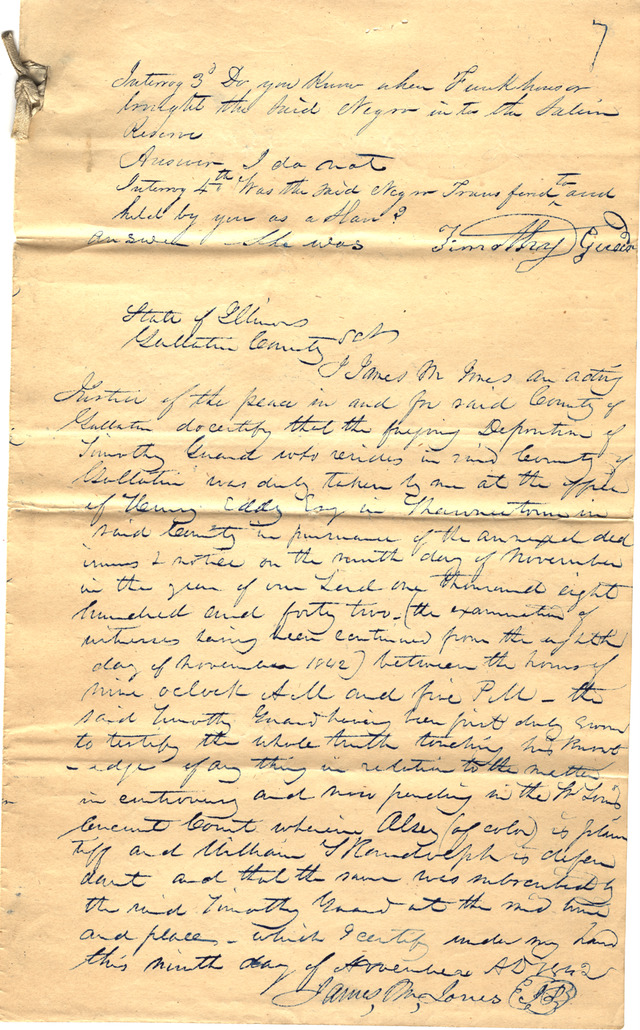 7
Interrog 3d Do you know when Funkhouser
brought the said Negro into the Saline
Reserve
Answer I do not
Interrog 4th Was the said Negro Transfered to and
held by you as a Slave?
answer She was Timothy Guard
State of Illinois
Gallatin County Sct
I James M Jones an acting
Justice of the peace in and for said County of
Gallatin do certify that the foregoing Deposition of
Timothy Guard who resides in said County of
Gallatin was duly taken by me at the office
of Henry Eddy Esq in Shawneetown in
said County in pursuance of the annexed ded
imus & notice on the ninth day of November
in the year of our Lord one thousand eight
hundred and forty two - (the examination of
witnesses having been continued from the eighth
day of November 1842) between the hours of
nine oclock AM and five PM - the
said Timothy Guard having been first duly sworn
to testify the whole truth touching his knowl
-edge of any thing in relation to the matter
in controversy and now pending in the
Circuit Court wherein Alsey (of color) is plain
tiff and William Randolph is defen
dant and that the same was subscribed by
the said Timothy Guard at the said time
and place - which I certify under my hand
this ninth day of November AD 1842
James M Jones